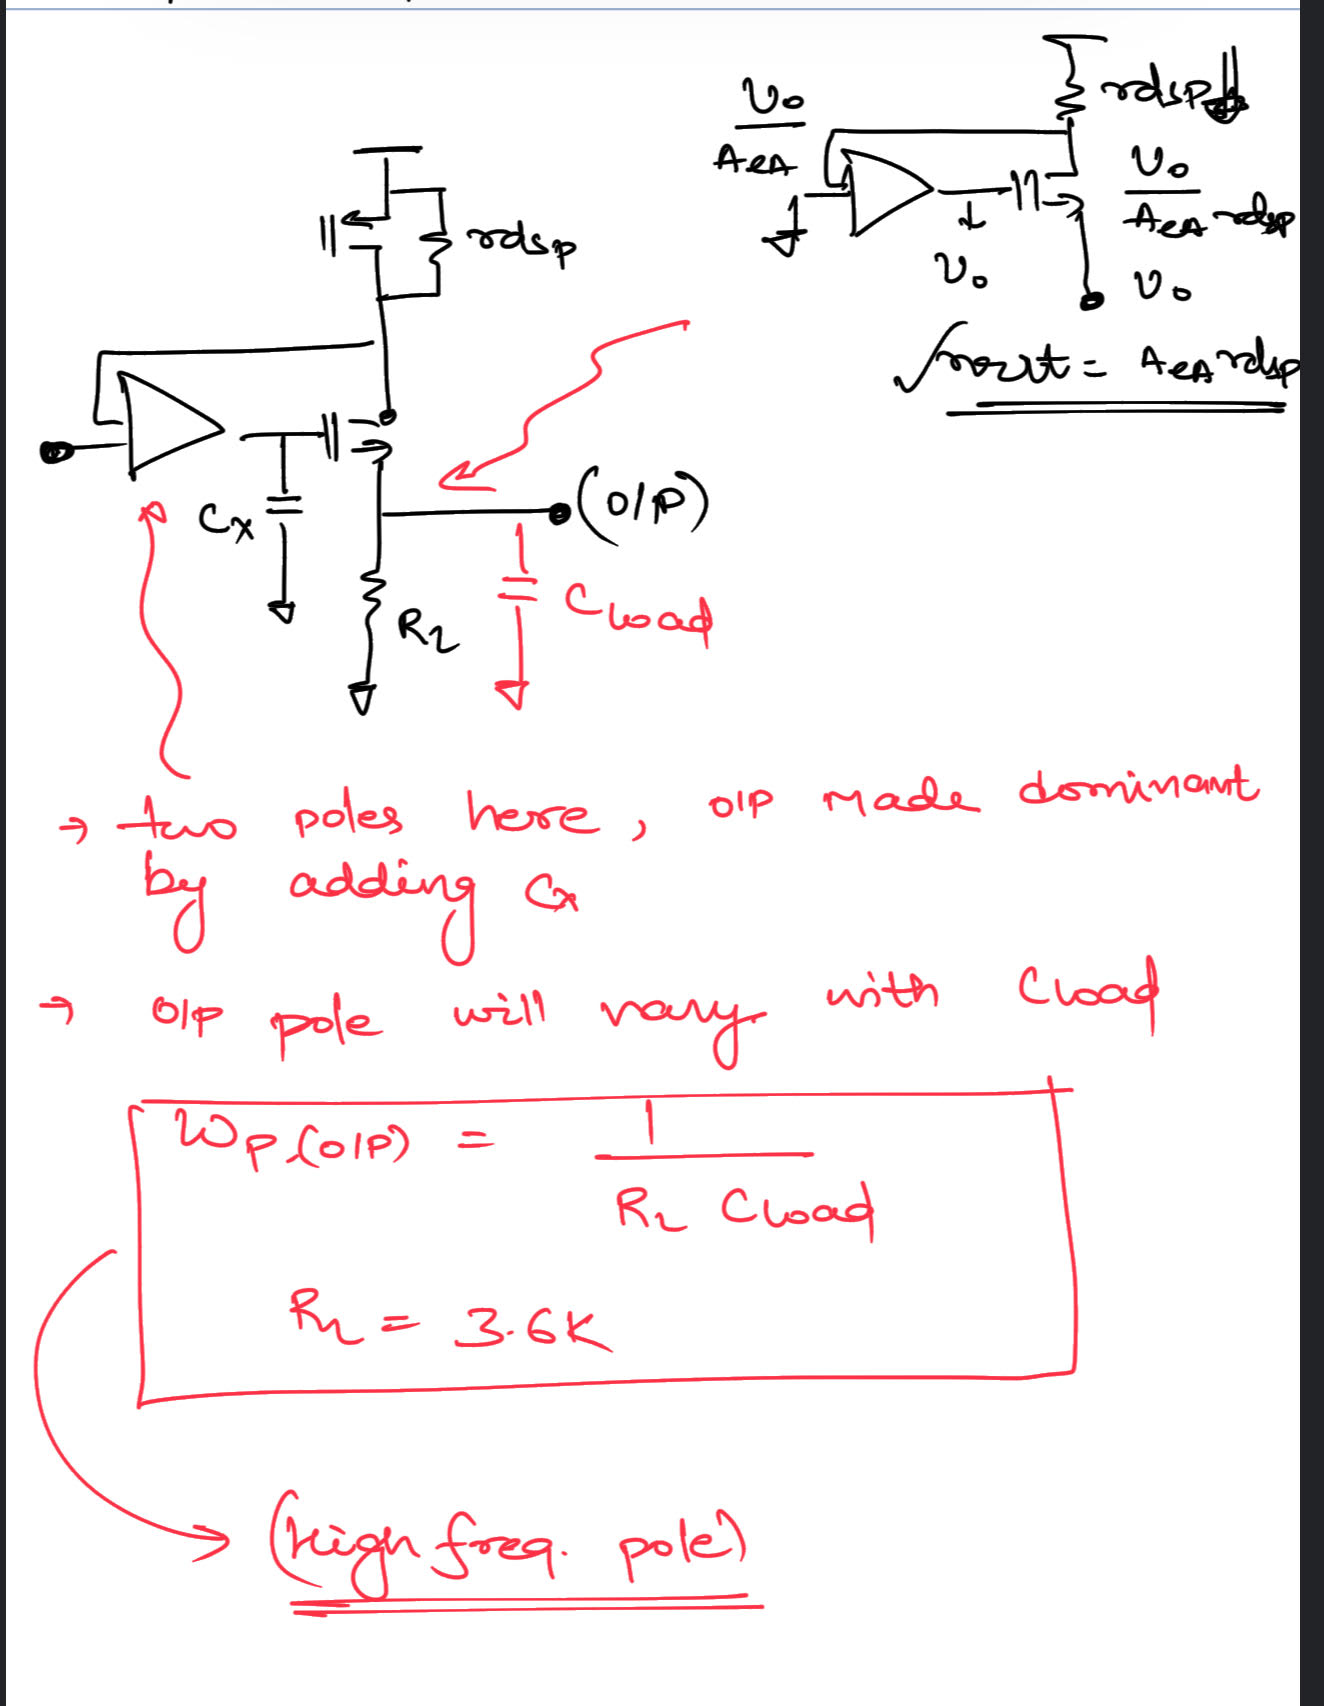 rdsp
Vo
AeA
rdsp
Vo
AeA rdsp
Vo
Vo
rout = AeA rdsp
Cx
(O/P)
RL
Cload
→ two poles here, O/P made dominant
by adding Cx
→ O/P pole will vary with Cload
ωP,(O/P) = 1
RL Cload
RL = 3.6K
(High freq. pole)